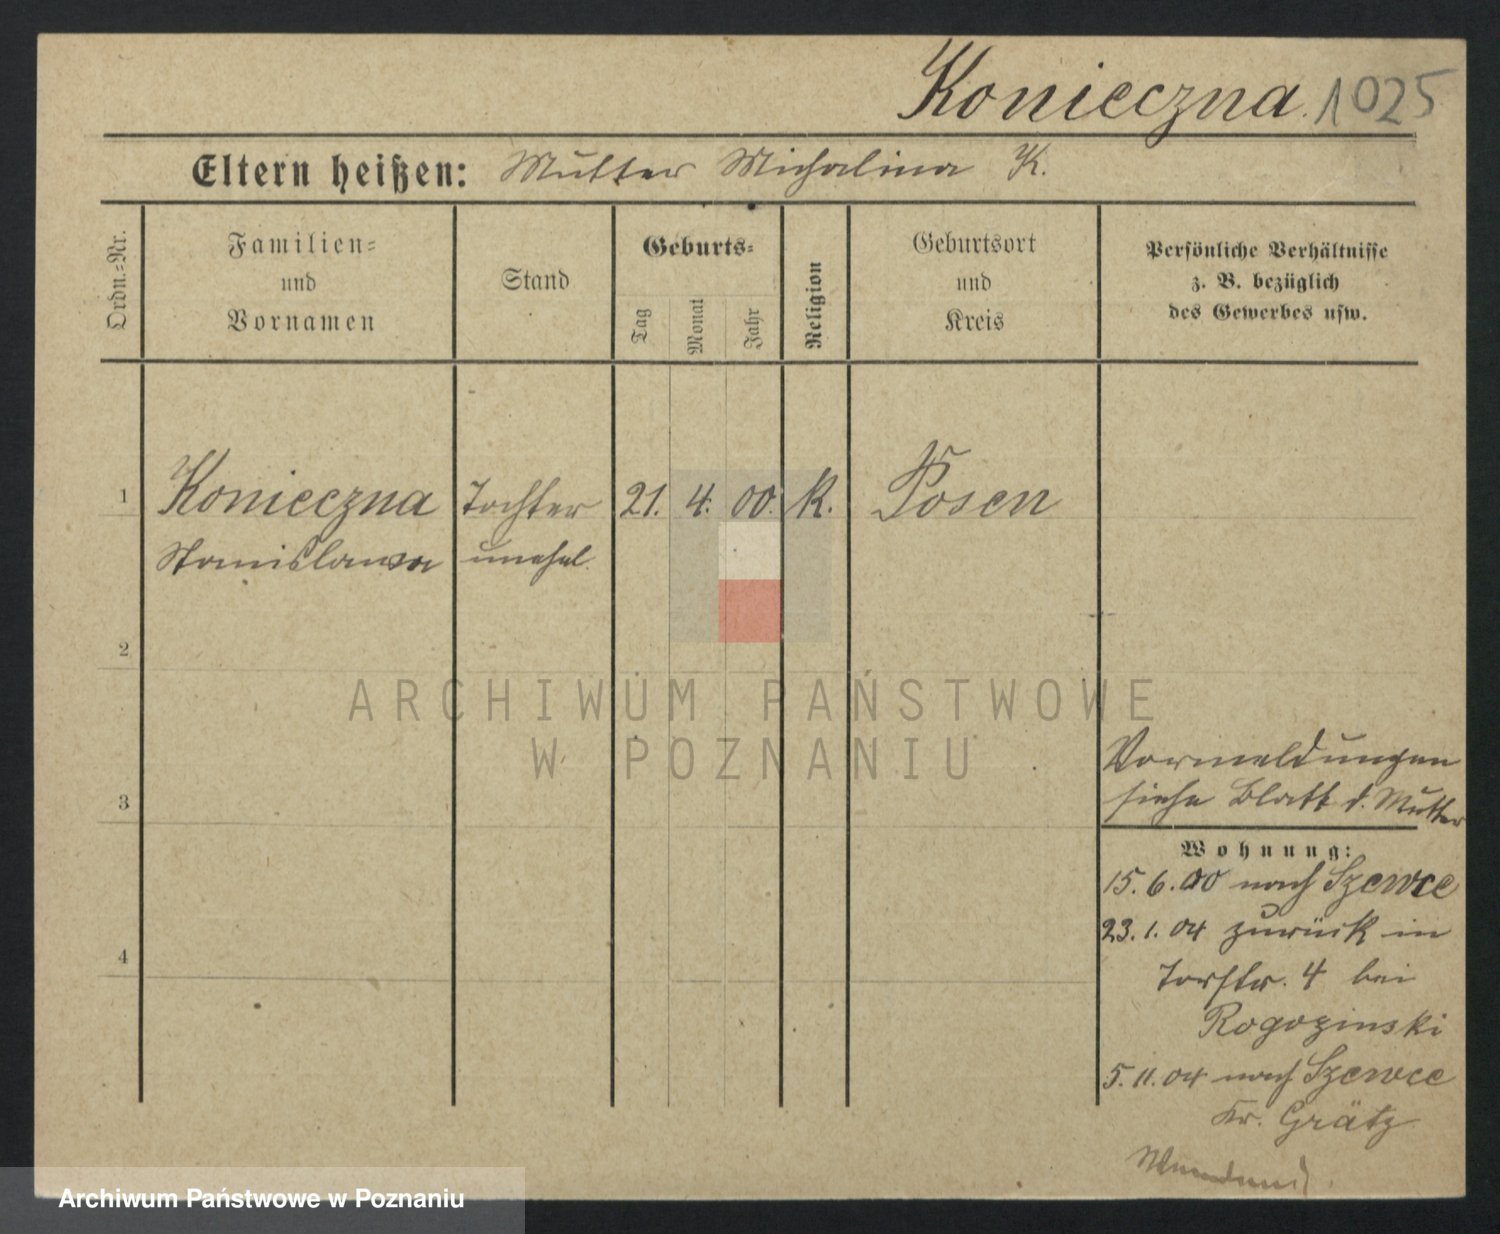 Konieczna. 1025
Eltern heißen: Mutter Michalina K.
Ordn.=Nr.
Familien=
und
Vornamen
Stand
Geburts=
Tag
Monat
Jahr
Religion
Geburtsort
und
Kreis
Persönliche Verhältnisse
z. B. bezüglich
des Gewerbes usw.
1 Konieczna Tochter 21. 4. 00. K. Posen
Stanislawa unehel.
2
ARCHIWUM PAŃSTWOWE
W POZNANIU
Vormeldungen
siehe Blatt d. Mutter
3
Wohnung:
15. 6. 00 nach Szewce
23. 1. 04 zurück in
4
Torstr. 4 bei
Rogozinski
5. 11. 04 nach Szewce
Kr. Grätz
Archiwum Państwowe w Poznaniu